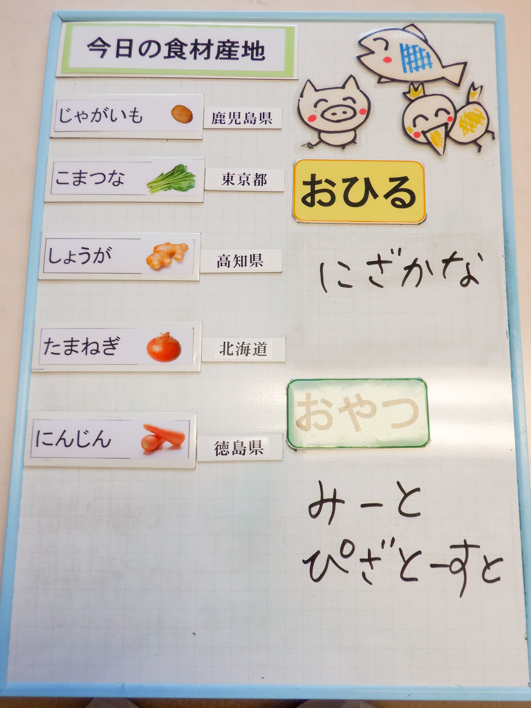 今日の食材産地
じゃがいも 鹿児島県
こまつな 東京都
しょうが 高知県
たまねぎ 北海道
にんじん 徳島県
おひる
にざかな
おやつ
みーと
ぴざとーすと